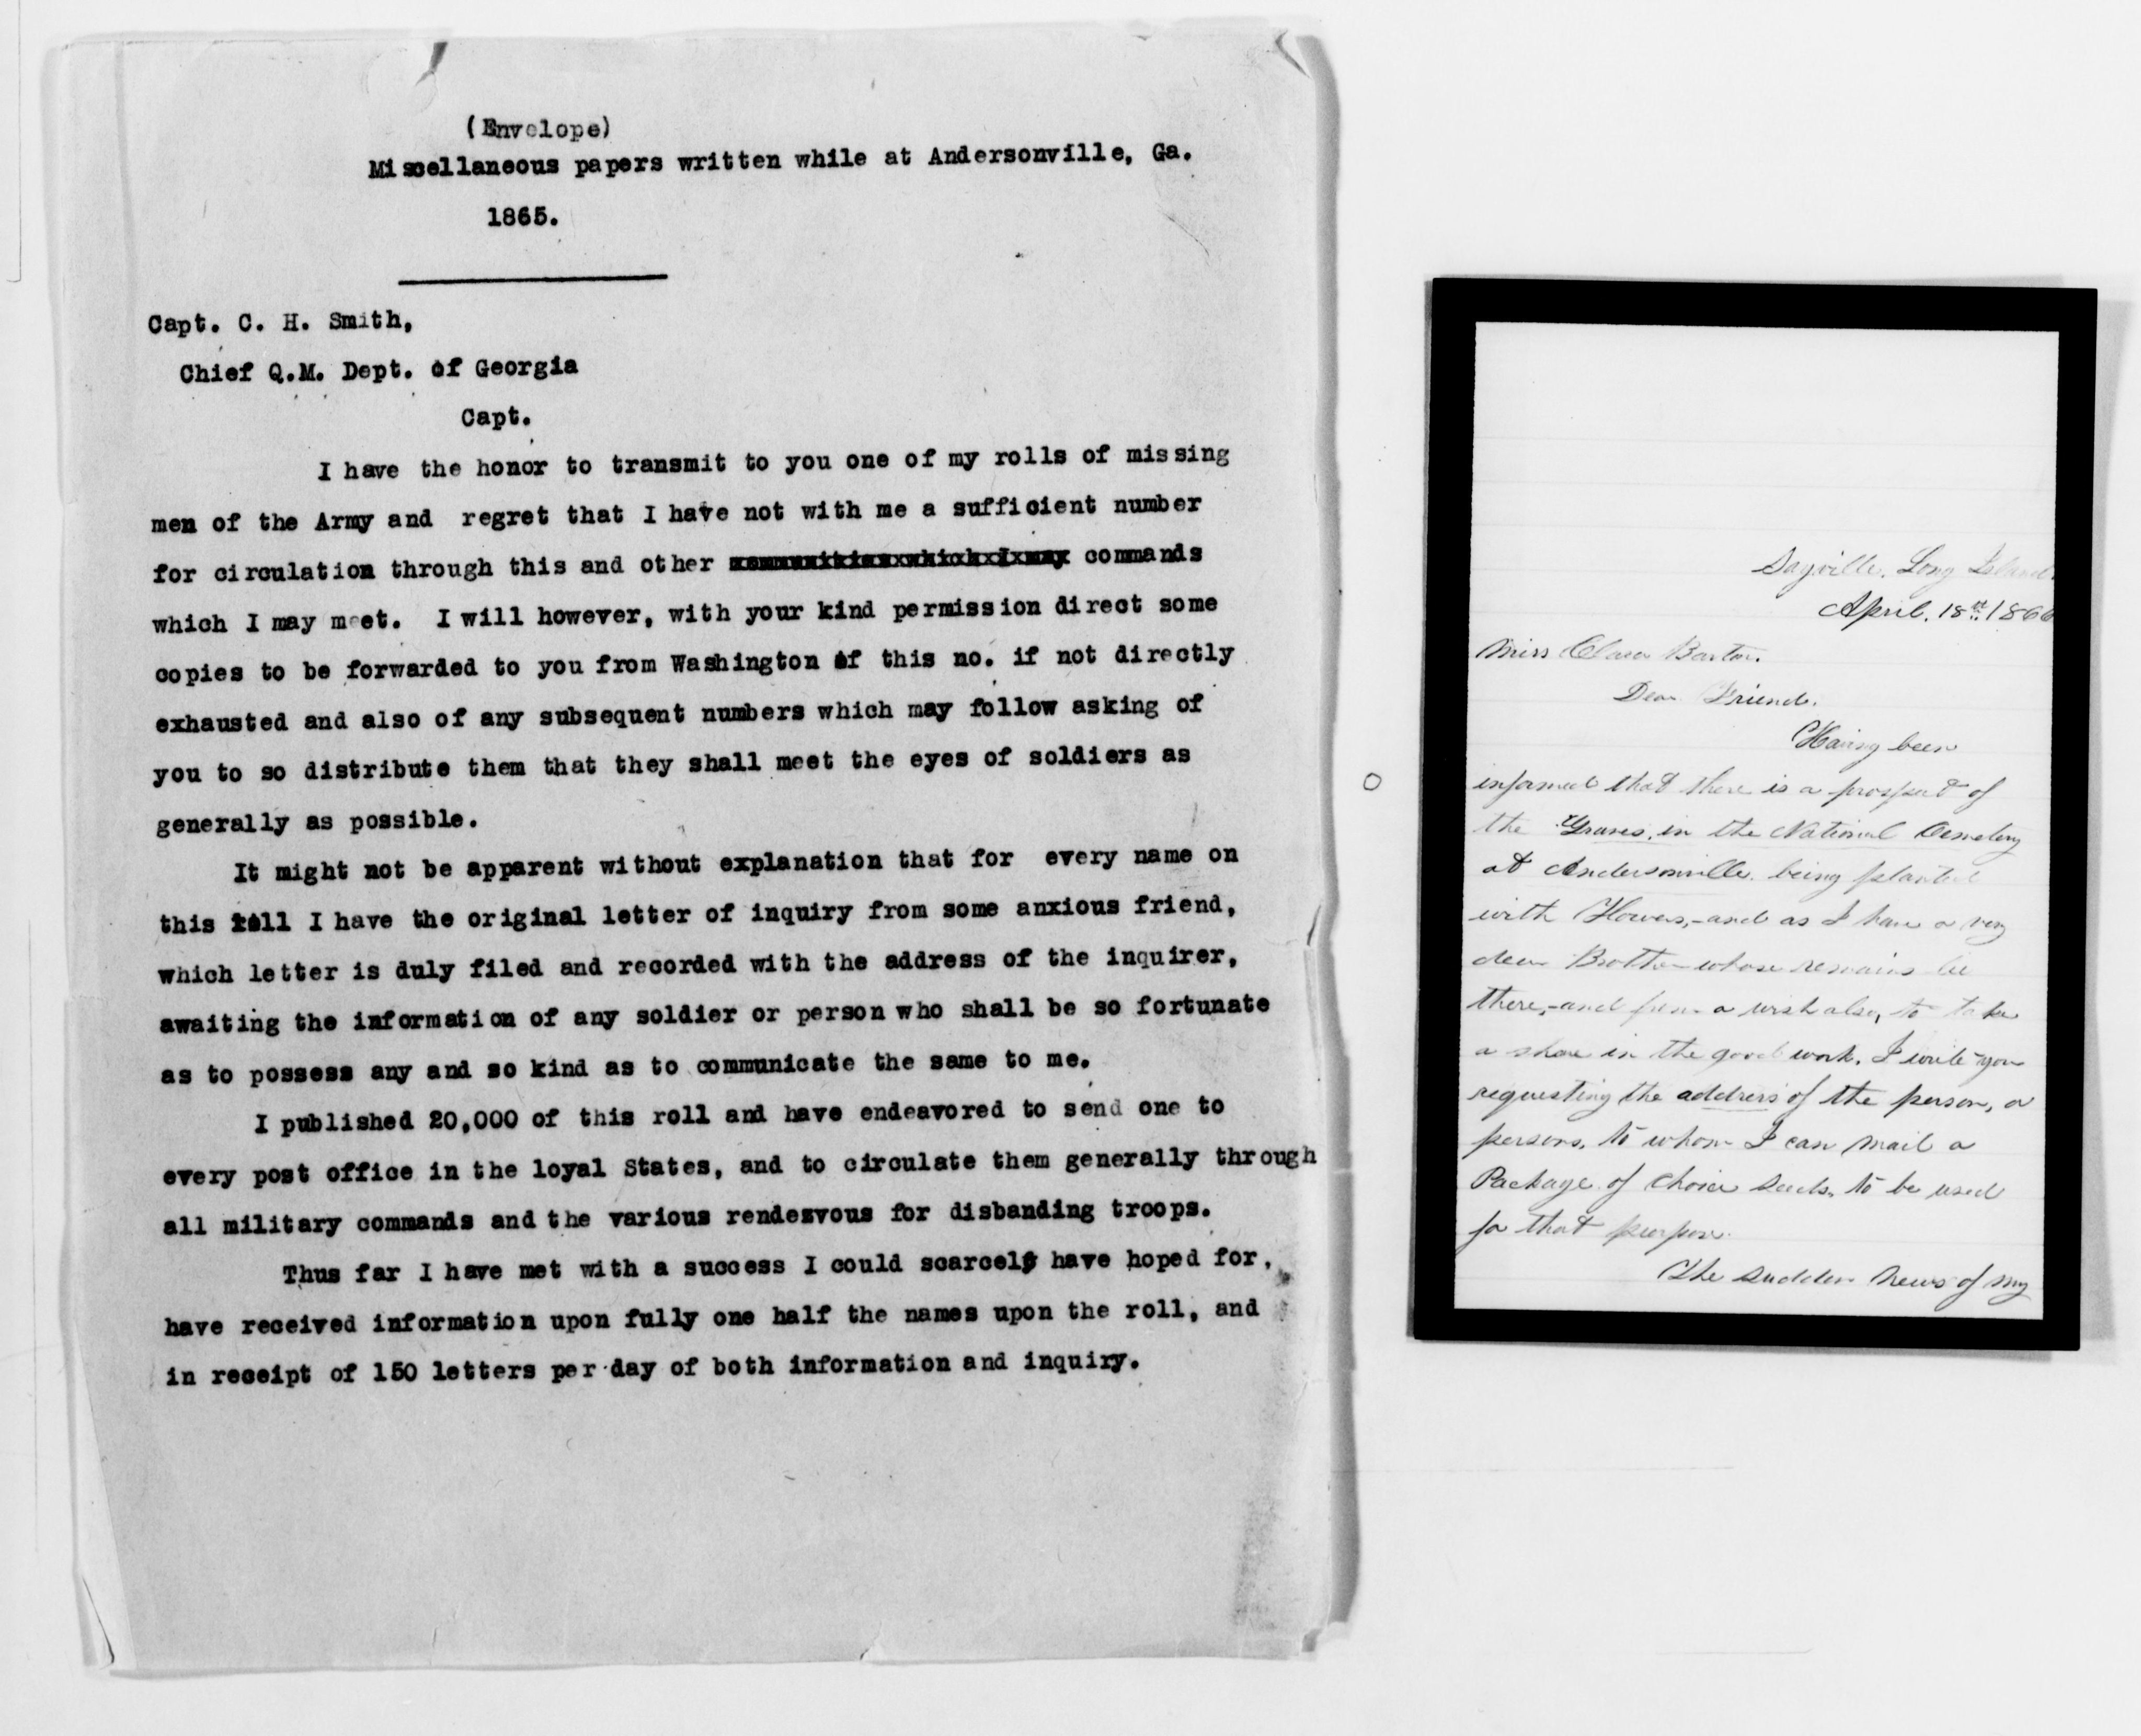 (Envelope)
Miscellaneous papers written while at Andersonville, Ga.
1865.
Capt. C. H. Smith,
Chief Q.M. Dept. of Georgia
Capt.
I have the honor to transmit to you one of my rolls of missing
men of the Army and regret that I have not with me a sufficient number
for circulation through this and other communities which I may commands
which I may meet. I will however, with your kind permission direct some
copies to be forwarded to you from Washington of this no. if not directly
exhausted and also of any subsequent numbers which may follow asking of
you to so distribute them that they shall meet the eyes of soldiers as
generally as possible.
It might not be apparent without explanation that for every name on
this roll I have the original letter of inquiry from some anxious friend,
which letter is duly filed and recorded with the address of the inquirer,
awaiting the information of any soldier or person who shall be so fortunate
as to possess any and so kind as to communicate the same to me.
I published 20,000 of this roll and have endeavored to send one to
every post office in the loyal States, and to circulate them generally through
all military commands and the various rendezvous for disbanding troops.
Thus far I have met with a success I could scarcely have hoped for,
have received information upon fully one half the names upon the roll, and
in receipt of 150 letters per day of both information and inquiry.
Sayville, Long Island.
April. 18th 1866
Miss Clara Barton.
Dear Friend.
Having been
informed that there is a prospect of
the Graves, in the National Cemetery
at Andersonville. being planted
with Flowers,-and as I have a very
dear Brother whose remains lie
there,-and from a wish also, to take
a share in the good work, I write you
requesting the address of the person, or
persons, to whom I can mail a
Package of choice Seeds, to be used
for that purpose.
The sudden news of my